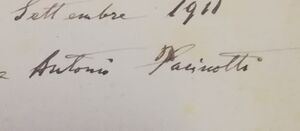 Settembre 1911
Antonio Pacinotti